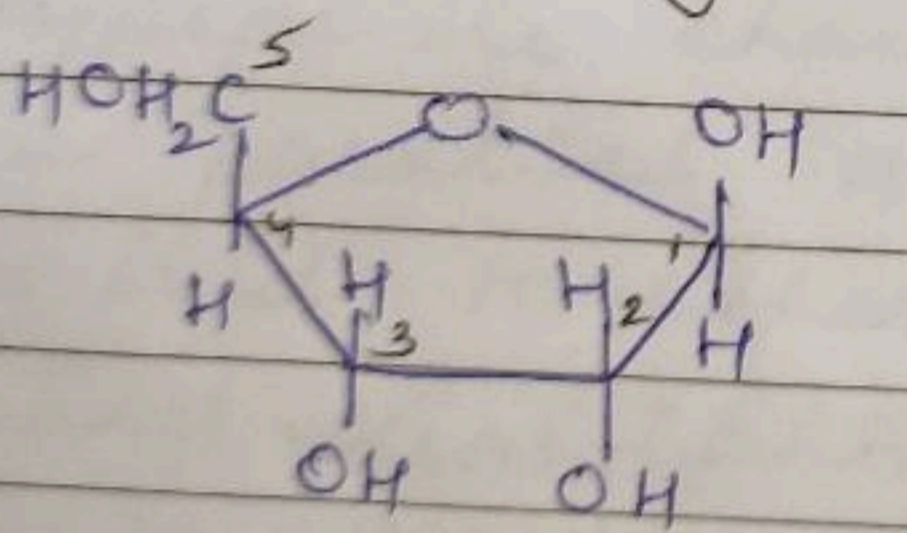 5
HOH₂C O OH
4 1
H H 3 H 2 H
OH OH